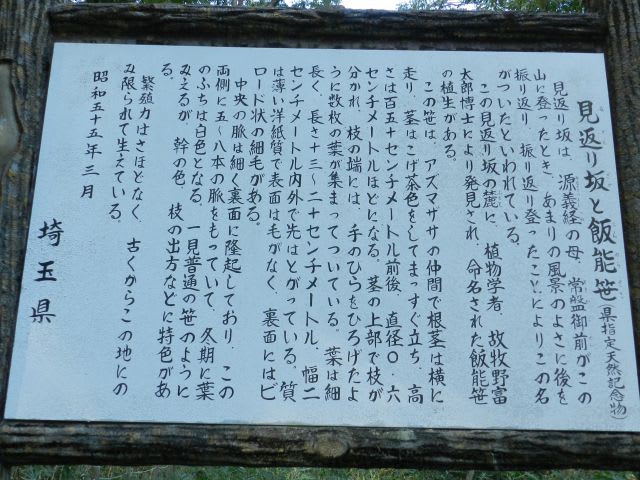 見返り坂と飯能笹(県指定天然記念物)
見返り坂は、源義経の母、常盤御前がこの
山に登ったとき、あまりの風景のよさに後を
振り返り、振り返り登ったことによりこの名
がついたといわれている。
この見返り坂の麓に、植物学者、故牧野富
太郎博士により発見され、命名された飯能笹
の植生がある。
この笹は、アズマササの仲間で根茎は横に
走り、茎はこげ茶色をしてまっすぐ立ち、高
さは百五十センチメートル前後、直径〇・六
センチメートルほどになる。茎の上部で枝が
分かれ、枝の端には、手のひらをひろげたよ
うに数枚の葉が集まってついている。葉は細
長く、長さ十三〜二十センチメートル、幅二
センチメートル内外で先はとがっている。質
は薄い洋紙質で表面は毛がなく、裏面にはビ
ロード状の細毛がある。
中央の脈は細く裏面に隆起しており、この
両側に五〜八本の脈をもっていて、冬期に葉
のふちは白色となる。一見普通の笹のように
みえるが、幹の色、枝の出方などに特色があ
る。
繁殖力はさほどなく、古くからこの地にの
み限られて生えている。
昭和五十五年三月
埼玉県